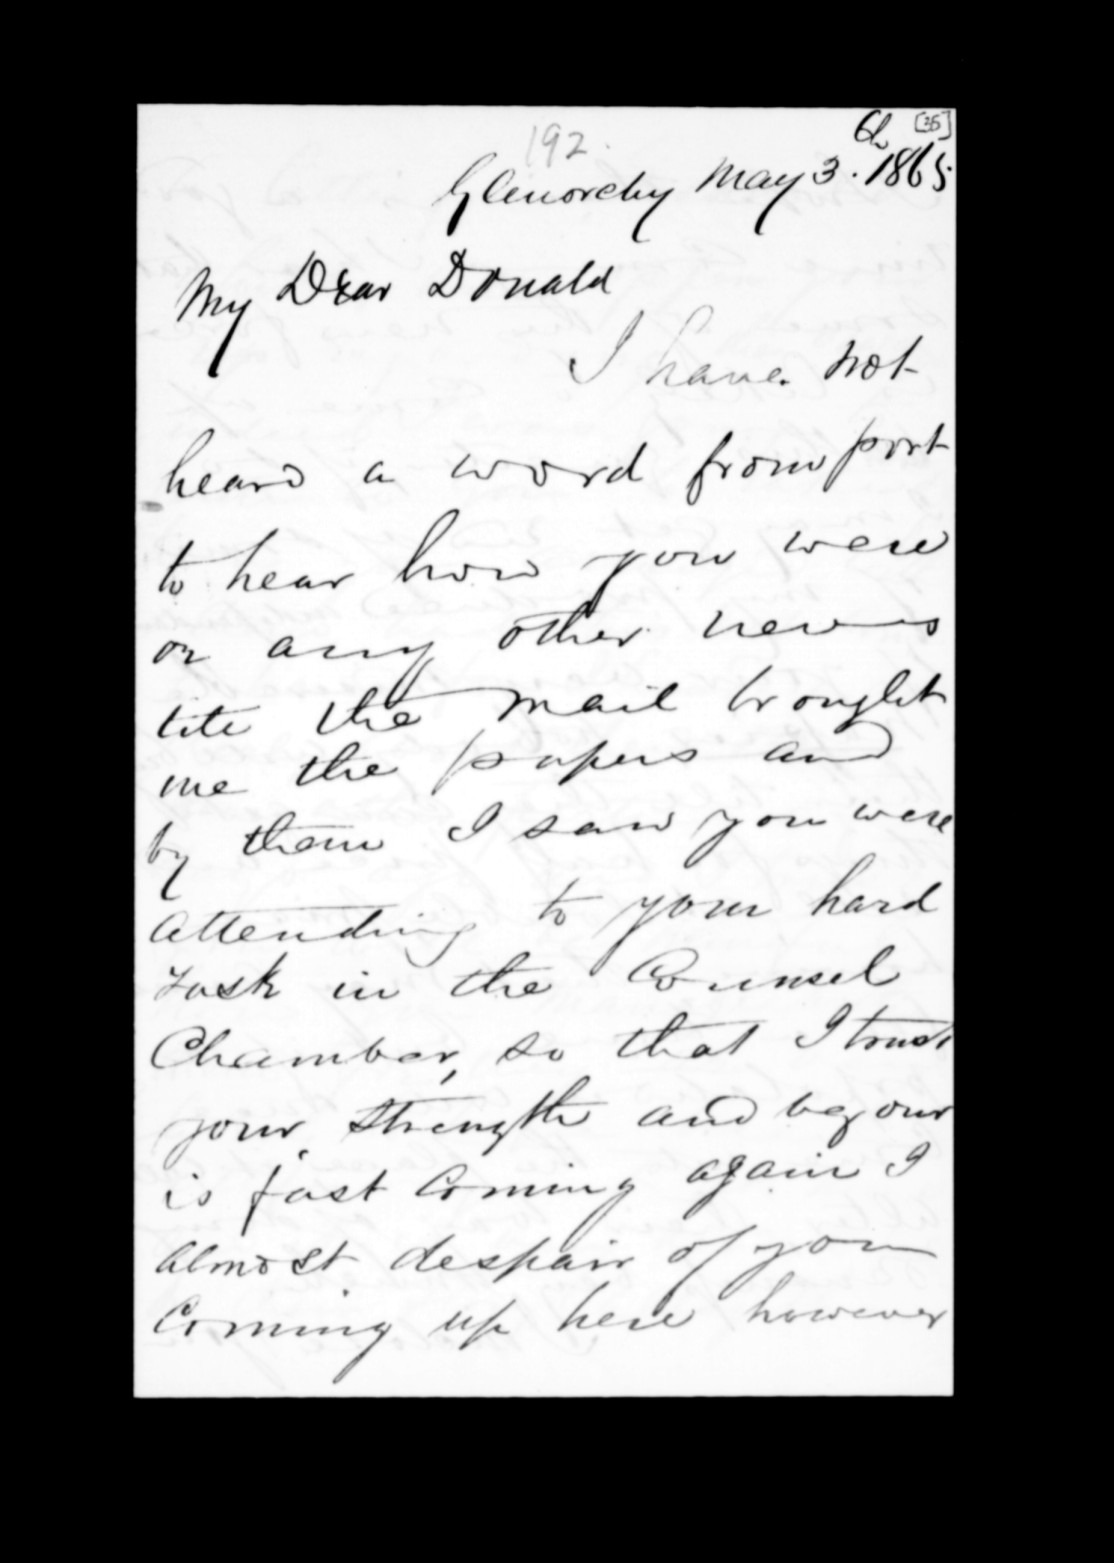 192.
[25]
Glenorchy May 3. 1865
My Dear Donald
I have not
heard a word from port
to hear how you were
or any other news
tite the mail brought
me the papers and
by them I saw you were
attending to your hard
task in the Counsel
Chamber, so that I trust
your strength and begour
is fast Coming again I
almost despair of you
Coming up here however